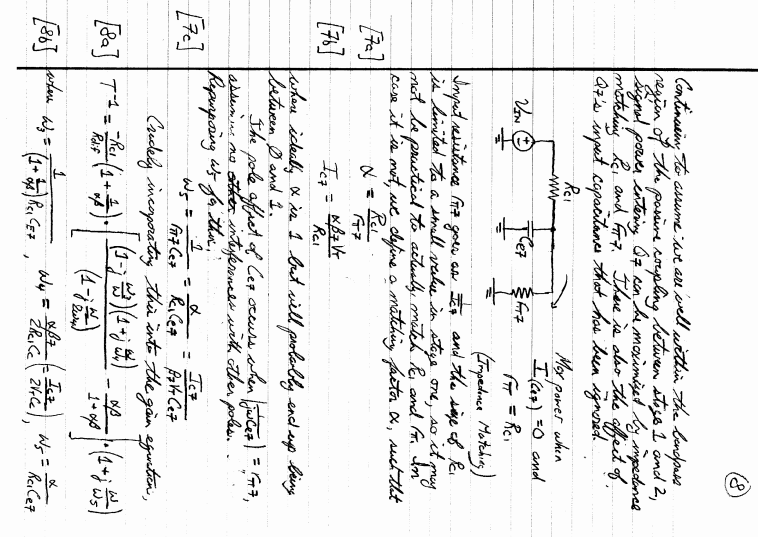 8
Continuing to assume we are well within the bandpass
region of the passive coupling between stage 1 and 2,
signal power entering Q7 can be maximised by impedance
matching Rc1 and rπ7. There is also the effect of
Q7's input capacitance that has been ignored.
Vin Rc1 Ce7 rπ7
Max power when
I(Ce7) = 0 and
rπ = Rc1
(Impedance Matching)
Input resistance rπ7 goes as Ic7 and the size of Rc1
is limited to a small value in stage one, so it may
not be practical to actually match Rc1 and rπ. In
case it is not, we define a matching factor α, such that
[7a] α = Rc1/rπ7
[7b] Ic7 = αβ7VT/Rc1
where ideally α is 1 but will probably end up being
between 0 and 1.
The pole effect of Ce7 occurs when |1/jωCe7| = rπ7,
assuming no other interferences with other poles.
Repurposing ω5 for this,
[7c] ω5 = 1/(rπ7Ce7) = α/(Rc1Ce7) = Ic7/(β7VTCe7)
Crudely incorporating this into the gain equation,
[8a] T⁻¹ = -Rc1/ (1 + 1/αβ) · [ (1 - j ω3/ω)(1 + j ω/ω4) / (1 - j ω/2ω4) - αβ/(1 + αβ) ] · (1 + j ω/ω5)
[8b] where ω3 = 1/((1 + 1/αβ)Rc1CE7), ω4 = αβ7/(2Rc1Cc) (= Ic7/(2VTCc)), ω5 = α/(Rc1Ce7)